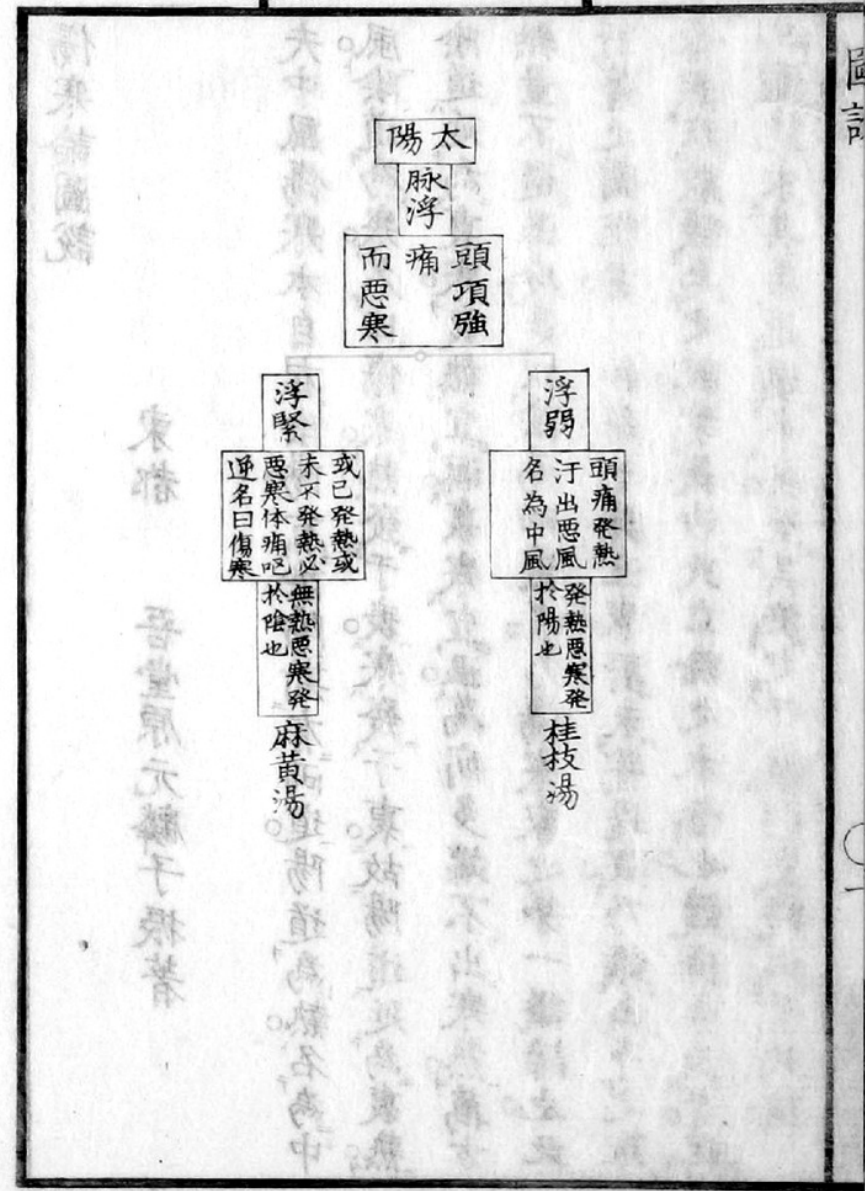 圖説
太陽
脉浮
頭項強
痛
而悪寒
浮弱
頭痛発熱
汗出悪風
名為中風
発熱悪寒発
於陽也
桂枝湯
浮緊
或已発熱或
未不発熱必
悪寒体痛呕
逆名曰傷寒
無熱悪寒発
於陰也
麻黄湯